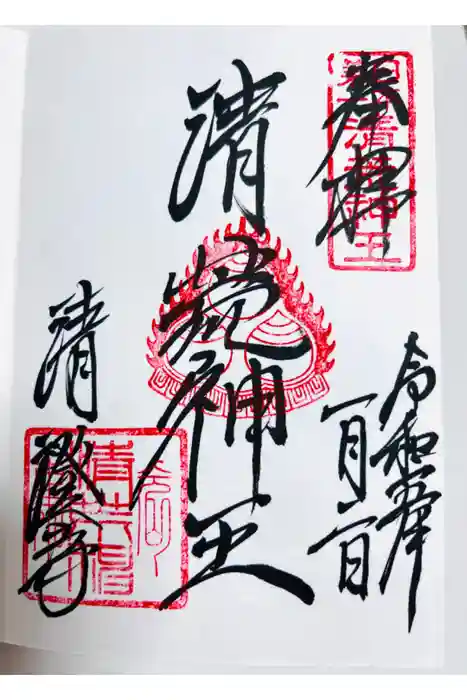 奉拝
令和五年
一月一日
清荒神王
清澄寺